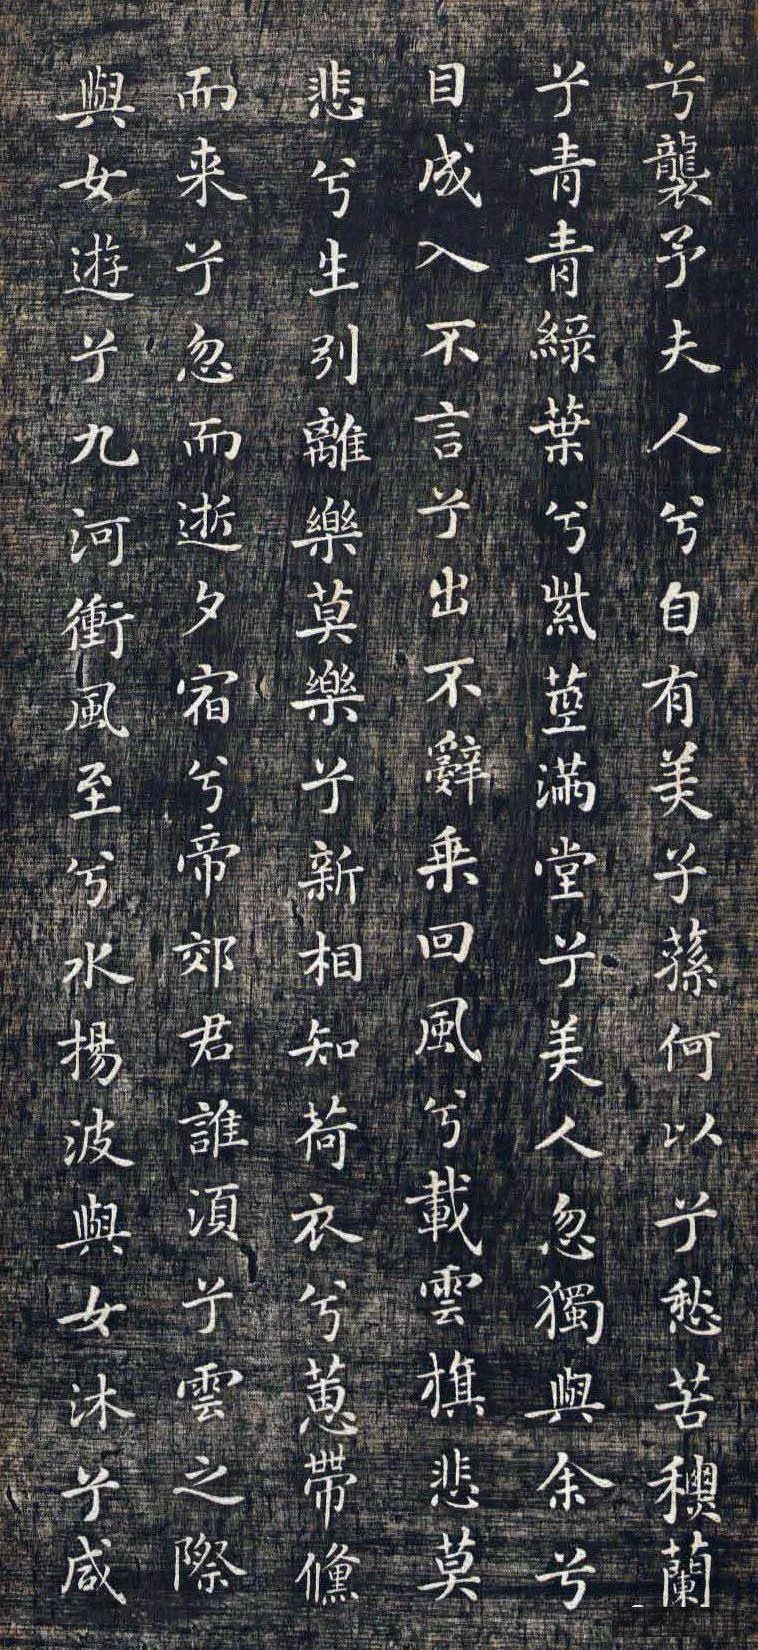 兮襲予夫人兮自有美子蓀何以兮愁苦穠蘭
兮青青綠葉兮紫莖滿堂兮美人忽獨與余兮
目成入不言兮出不辭乗回風兮載雲旗悲莫
悲兮生別離樂莫樂兮新相知荷衣兮蕙帶儵
而来兮忽而逝夕宿兮帝郊君誰須兮雲之際
與女遊兮九河衝風至兮水揚波與女沐兮咸